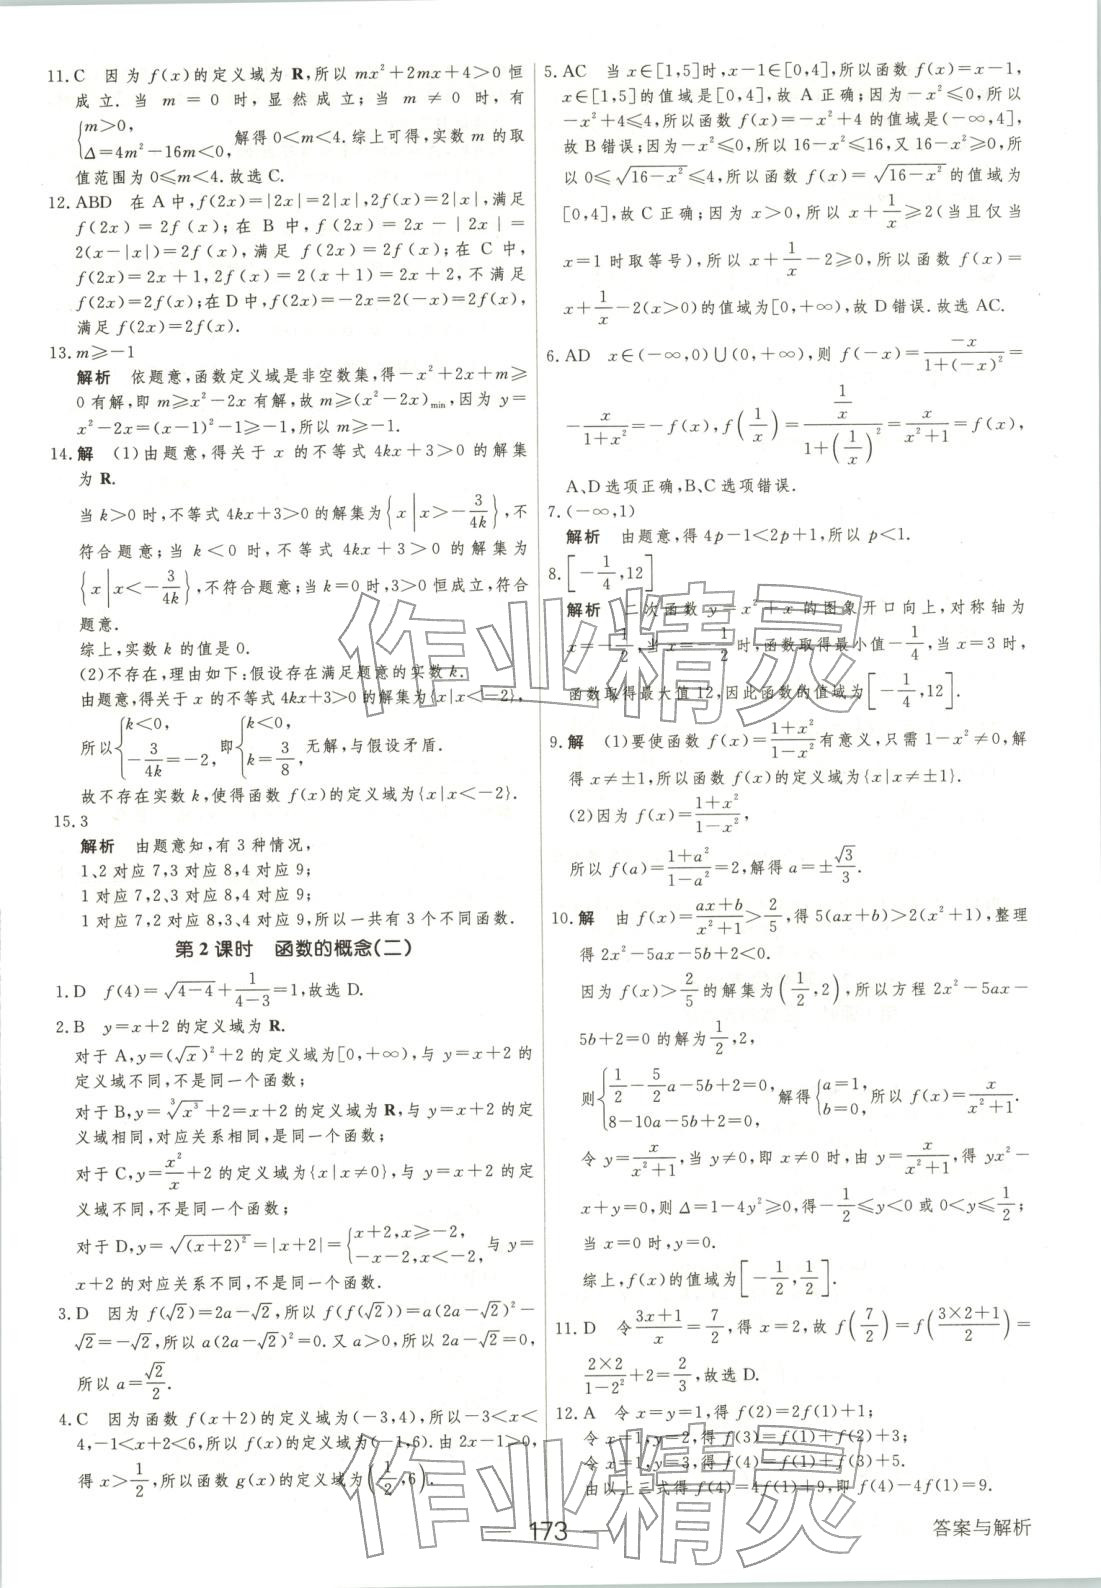 11.C　因为 f(x)的定义域为 R,所以 mx²+2mx+4>0 恒
成立. 当 m=0 时,显然成立;当 m≠0 时,有
{m>0,
Δ=4m²-16m<0, 解得 0<m<4.综上可得,实数 m 的取
值范围为 0≤m<4.故选 C.
12.ABD　在 A 中,f(2x)=|2x|=2|x|,2f(x)=2|x|,满足
f(2x)=2f(x);在 B 中,f(2x)=2x-|2x|=
2(x-|x|)=2f(x),满足 f(2x)=2f(x);在 C 中,
f(2x)=2x+1,2f(x)=2(x+1)=2x+2,不满足
f(2x)=2f(x);在 D 中,f(2x)=-2x=2(-x)=2f(x),
满足 f(2x)=2f(x).
13.m≥-1
解析　依题意,函数定义域是非空数集,得-x²+2x+m≥
0 有解,即 m≥x²-2x 有解,故 m≥(x²-2x)min,因为 y=
x²-2x=(x-1)²-1≥-1,所以 m≥-1.
14.解　(1)由题意,得关于 x 的不等式 4kx+3>0 的解集
为 R.
当 k>0 时,不等式 4kx+3>0 的解集为{x|x>-3/(4k)},不
符合题意;当 k<0 时,不等式 4kx+3>0 的解集为
{x|x<-3/(4k)},不符合题意;当 k=0 时,3>0 恒成立,符合
题意.
综上,实数 k 的值是 0.
(2)不存在,理由如下:假设存在满足题意的实数 k.
由题意,得关于 x 的不等式 4kx+3>0 的解集为{x|x<-2},
所以{k<0, -3/(4k)=-2, 即{k<0, k=3/8, 无解,与假设矛盾.
故不存在实数 k,使得函数 f(x)的定义域为{x|x<-2}.
15.3
解析　由题意知,有 3 种情况,
1、2 对应 7,3 对应 8,4 对应 9;
1 对应 7,2、3 对应 8,4 对应 9;
1 对应 7,2 对应 8,3、4 对应 9,所以一共有 3 个不同函数.
第 2 课时　函数的概念(二)
1.D　f(4)=√(4-4)+1/(4-3)=1,故选 D.
2.B　y=x+2 的定义域为 R.
对于 A,y=(√x)²+2 的定义域为[0,+∞),与 y=x+2 的
定义域不同,不是同一个函数;
对于 B,y=∛(x³)+2=x+2 的定义域为 R,与 y=x+2 的定
义域相同,对应关系相同,是同一个函数;
对于 C,y=x²/x+2 的定义域为{x|x≠0},与 y=x+2 的定
义域不同,不是同一个函数;
对于 D,y=√((x+2)²)=|x+2|={x+2,x≥-2, -x-2,x<-2, 与 y=
x+2 的对应关系不同,不是同一个函数.
3.D　因为 f(√2)=2a-√2,所以 f(f(√2))=a(2a-√2)²-
√2=-√2,所以 a(2a-√2)²=0.又 a>0,所以 2a-√2=0,
所以 a=√2/2.
4.C　因为函数 f(x+2)的定义域为(-3,4),所以-3<x<
4,-1<x+2<6,所以 f(x)的定义域为(-1,6).由 2x-1>0,
得 x>1/2,所以函数 g(x)的定义域为(1/2,6).
5.AC　当 x∈[1,5]时,x-1∈[0,4],所以函数 f(x)=x-1,
x∈[1,5]的值域是[0,4],故 A 正确;因为-x²≤0,所以
-x²+4≤4,所以函数 f(x)=-x²+4 的值域是(-∞,4],
故 B 错误;因为-x²≤0,所以 16-x²≤16,又 16-x²≥0,所
以 0≤√(16-x²)≤4,所以函数 f(x)=√(16-x²) 的值域为
[0,4],故 C 正确;因为 x>0,所以 x+1/x≥2(当且仅当
x=1 时取等号),所以 x+1/x-2≥0,所以函数 f(x)=
x+1/x-2(x>0)的值域为[0,+∞),故 D 错误.故选 AC.
6.AD　x∈(-∞,0)∪(0,+∞),则 f(-x)=-x/(1+(-x)²)=
-x/(1+x²)=-f(x),f(1/x)=(1/x)/(1+(1/x)²)=x/(x²+1)=f(x),
A、D 选项正确,B、C 选项错误.
7.(-∞,1)
解析　由题意,得 4p-1<2p+1,所以 p<1.
8.[-1/4,12]
解析　二次函数 y=x²+x 的图象开口向上,对称轴为
x=-1/2,当 x=-1/2时,函数取得最小值-1/4,当 x=3 时,
函数取得最大值 12,因此函数的值域为[-1/4,12].
9.解　(1)要使函数 f(x)=(1+x²)/(1-x²)有意义,只需 1-x²≠0,解
得 x≠±1,所以函数 f(x)的定义域为{x|x≠±1}.
(2)因为 f(x)=(1+x²)/(1-x²),
所以 f(a)=(1+a²)/(1-a²)=2,解得 a=±√3/3.
10.解　由 f(x)=(ax+b)/(x²+1)>2/5,得 5(ax+b)>2(x²+1),整理
得 2x²-5ax-5b+2<0.
因为 f(x)>2/5的解集为(1/2,2),所以方程 2x²-5ax-
5b+2=0 的解为1/2,2,
则{1/2-5/2a-5b+2=0, 8-10a-5b+2=0, 解得{a=1, b=0, 所以 f(x)=x/(x²+1).
令 y=x/(x²+1),当 y≠0,即 x≠0 时,由 y=x/(x²+1),得 yx²-
x+y=0,则 Δ=1-4y²≥0,得-1/2≤y<0 或 0<y≤1/2;
当 x=0 时,y=0.
综上,f(x)的值域为[-1/2,1/2].
11.D　令(3x+1)/x=7/2,得 x=2,故 f(7/2)=f((3×2+1)/2)=
(2×2)/(1-2²)+2=2/3,故选 D.
12.A　令 x=y=1,得 f(2)=2f(1)+1;
令 x=1,y=2,得 f(3)=f(1)+f(2)+3;
令 x=1,y=3,得 f(4)=f(1)+f(3)+5.
由以上三式得 f(4)=4f(1)+9,即 f(4)-4f(1)=9.
作业精灵
作业精灵
173
答案与解析